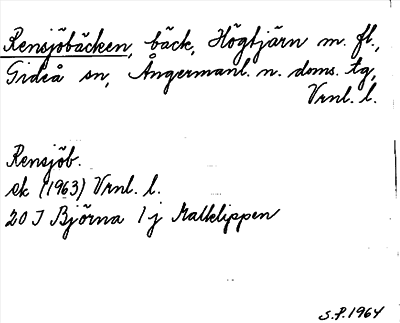 Rensjöbäcken, bäck, Högtjärn m. fl.,
Gideå sn, Ångermanl. n. doms. tg,
Vrnl. l.
Rensjöb.
ek (1963) Vrnl. l.
20 I Björna 1 j Malklippen
S.P. 1964